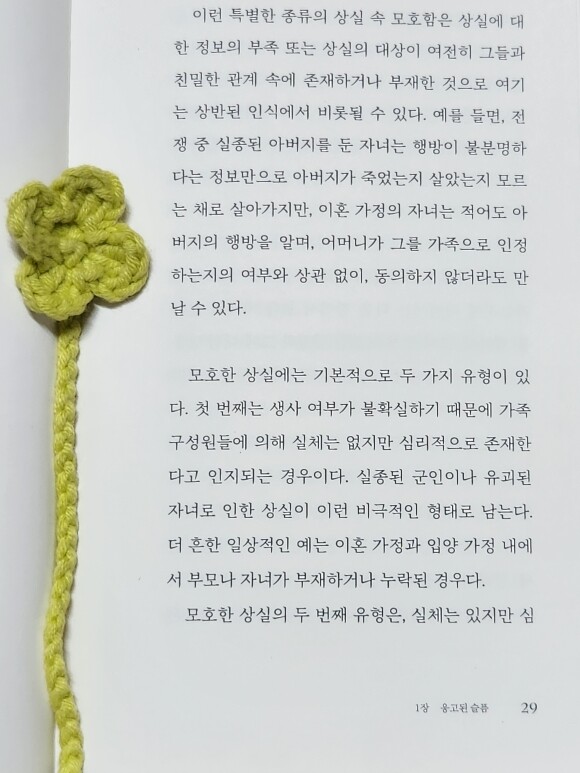 이런 특별한 종류의 상실 속 모호함은 상실에 대
한 정보의 부족 또는 상실의 대상이 여전히 그들과
친밀한 관계 속에 존재하거나 부재한 것으로 여기
는 상반된 인식에서 비롯될 수 있다. 예를 들면, 전
쟁 중 실종된 아버지를 둔 자녀는 행방이 불분명하
다는 정보만으로 아버지가 죽었는지 살았는지 모르
는 채로 살아가지만, 이혼 가정의 자녀는 적어도 아
버지의 행방을 알며, 어머니가 그를 가족으로 인정
하는지의 여부와 상관 없이, 동의하지 않더라도 만
날 수 있다.
모호한 상실에는 기본적으로 두 가지 유형이 있
다. 첫 번째는 생사 여부가 불확실하기 때문에 가족
구성원들에 의해 실체는 없지만 심리적으로 존재한
다고 인지되는 경우이다. 실종된 군인이나 유괴된
자녀로 인한 상실이 이런 비극적인 형태로 남는다.
더 흔한 일상적인 예는 이혼 가정과 입양 가정 내에
서 부모나 자녀가 부재하거나 누락된 경우다.
모호한 상실의 두 번째 유형은, 실체는 있지만 심
1장 응고된 슬픔 29